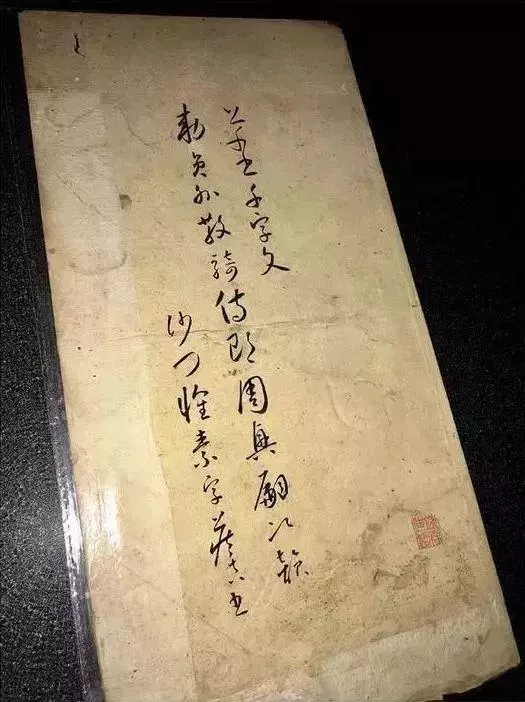 草書千字文
勅員外散騎侍郎周興嗣次韻
沙門懷素字藏真書